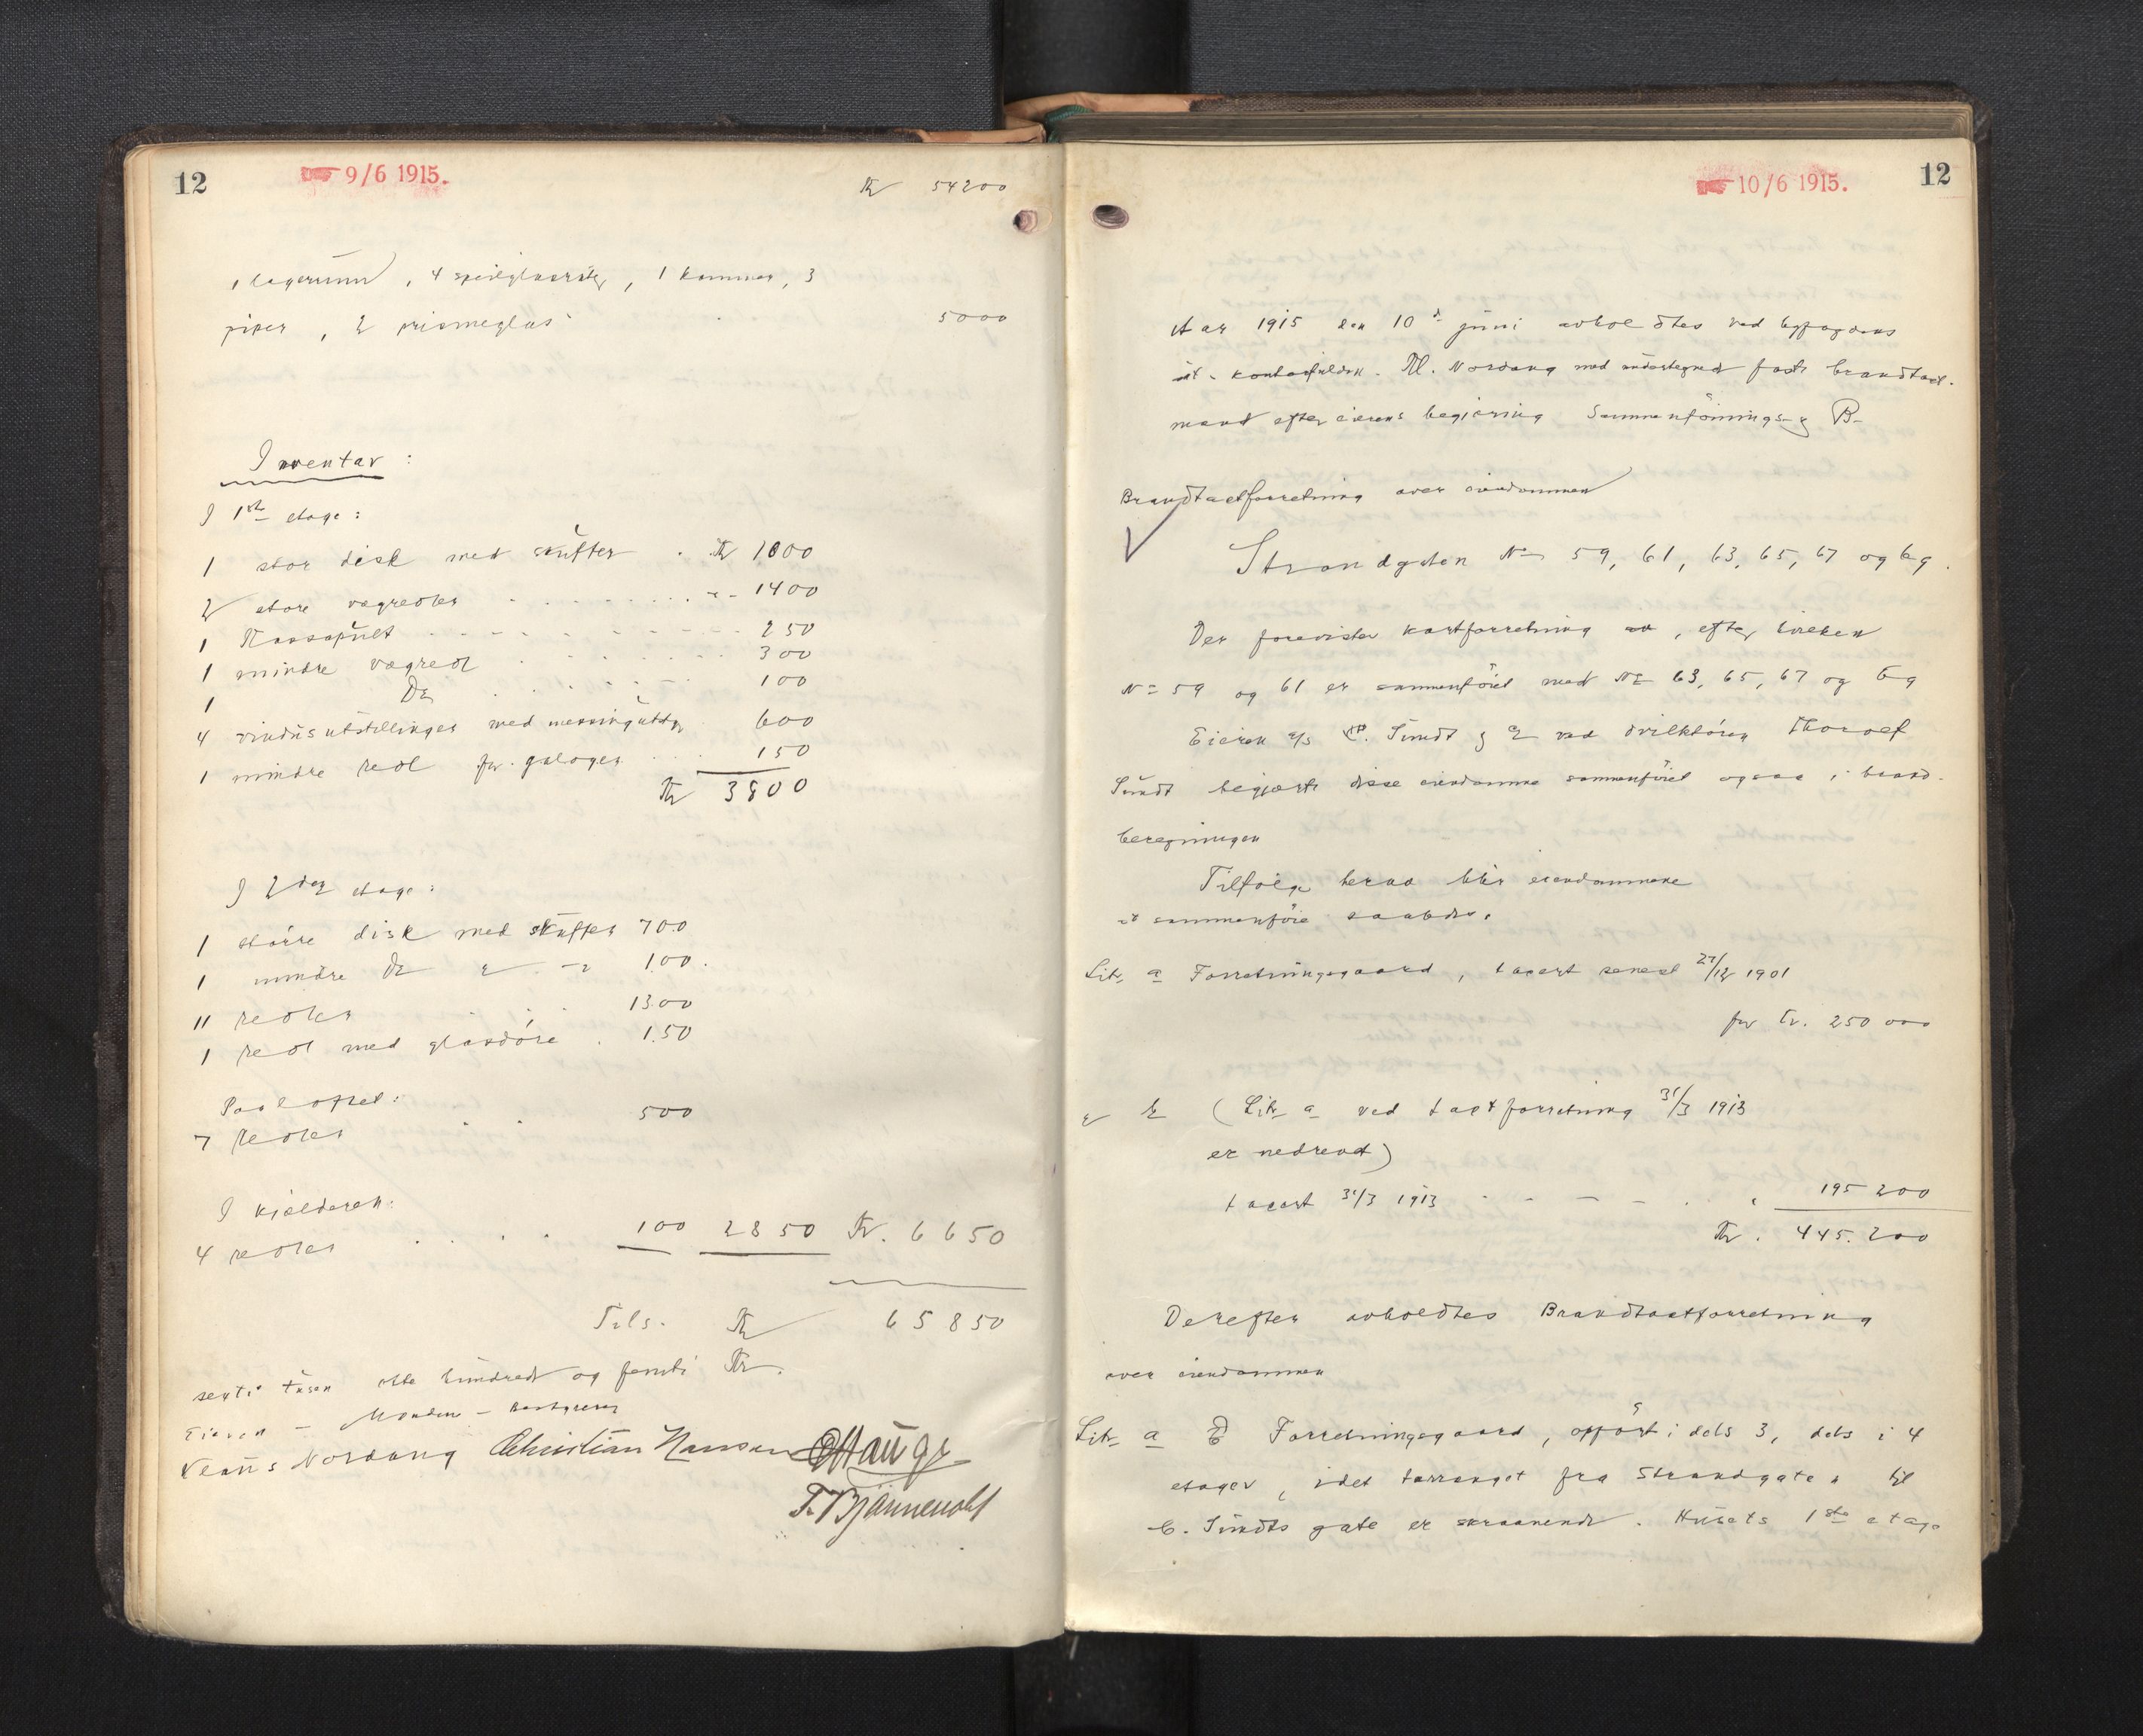 12
9/6 1915.
Kr 54200
1 lagerrum, 4 speilglasruter, 1 kammer, 3
piper, 2 prismeglas 5000
Inventar:
I 1ste etage:
1 stor disk med skuffer . Kr 1000
2 store vægreoler 1400
1 Kassapult 250
1 mindre vægreol 300
1 Do 100
4 vindusutstillinger med messingutstyr 600
1 mindre reol for galoger 150
Kr 3800
I 2den etage:
1 større disk med skuffer 700
1 mindre Do 100.
11 reoler 1300
1 reol med glasdøre . 150
Paa loftet:
7 reoler 500
I kjælderen:
4 reoler 100 2850 Kr. 6650
Tils. Kr 65850
otte hundrede og femti Kr.
Eieren –
Klaus Nordang Christian Hansen OHauge
T. Bjørnevold
12
10/6 1915.
Aar 1915 den 10d juni avholdtes ved byfogdens
kontorfuldm. Kl. Nordang med undertegnede faste brandtaxt-
mænd efter eierens begjæring Sammenføinings- &
Brandtaxtforretning over eiendommen
Strandgaten No 59, 61, 63, 65, 67 og 69.
Der forevistes kartforretning, efter hvilken
No 59 og 61 er sammenføiet med No 63, 65, 67 og 69
Eieren a/s Sundt & Co ved direktøren Thorolf
Sundt begjærte disse eiendomme sammenføiet ogsaa i brand-
beregningen
Tilfølge herav blir eiendommene
at sammenføie saaledes.
Litr a Forretningsgaard, taxert senest 27/12 1901
for Kr. 250 000
" b (Litr a ved taxtforretning 31/3 1913
er nedrevet)
taxert 31/3 1913 195 200
Kr. 445.200
Derefter avholdtes Brandtaxtforretning
over eiendommen
Litr a Forretningsgaard, opført i dels 3, dels i 4
etager, idet terrænget fra Strandgaten til
C. Sundts gate er skraanende. Husets 1ste etage